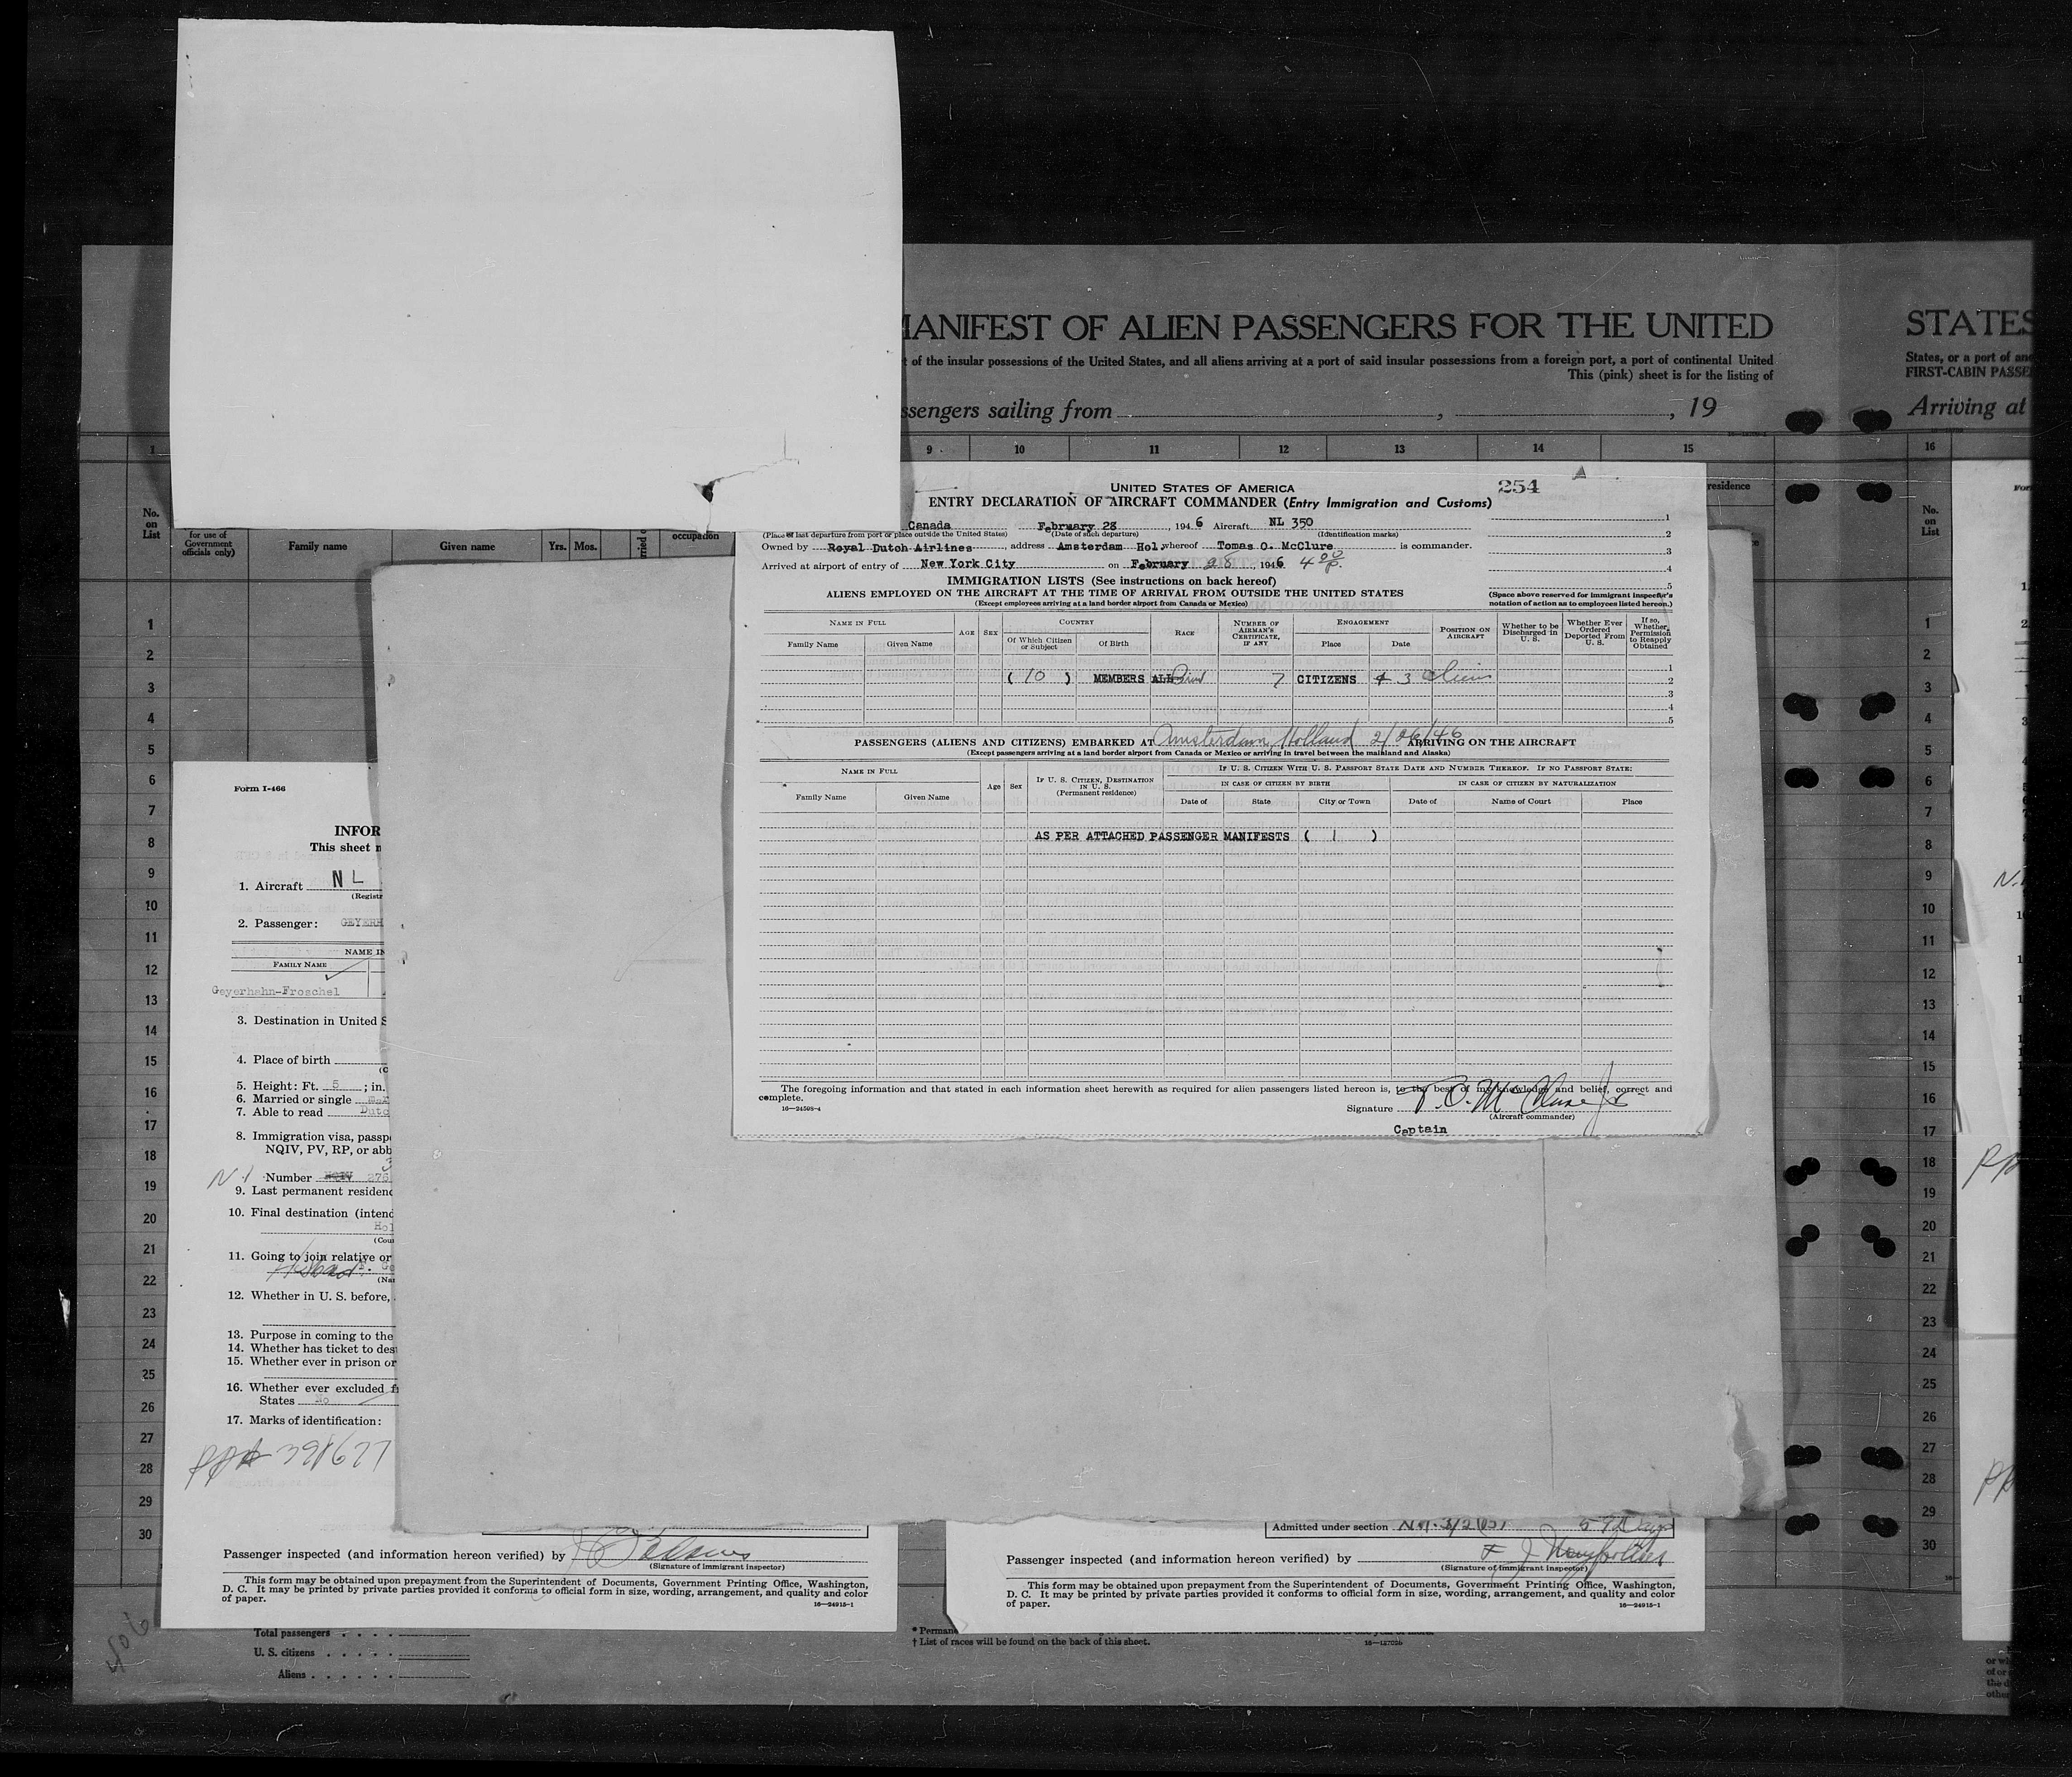 MANIFEST OF ALIEN PASSENGERS FOR THE UNITED
of the insular possessions of the United States, and all aliens arriving at a port of said insular possessions from a foreign port, a port of continental United
This (pink) sheet is for the listing of
sailing from , , 19
1 9 10 11 12 13 14 15
No. on List
for use of Government officials only)
Family name
Given name
Yrs. Mos.
occupation
residence
1
2
3
4
5
6
7
8
9
10
11
12
13
14
15
16
17
18
19
20
21
22
23
24
25
26
27
28
29
30
Total passengers
U. S. citizens
Aliens
† List of races will be found on the back of this sheet.
STATES
States, or a port of
FIRST-CABIN
Arriving at
16
No. on List
1
2
3
4
5
6
7
8
9
10
11
12
13
14
15
16
17
18
19
20
21
22
23
24
25
26
27
28
29
30
254
UNITED STATES OF AMERICA
ENTRY DECLARATION OF AIRCRAFT COMMANDER (Entry Immigration and Customs)
Canada February 28, 1946 Aircraft NL 350
(Place of last departure from port or place outside the United States) (Date of such departure) (Identification marks)
Owned by Royal Dutch Airlines, address Amsterdam Hol. whereof Tomas O. McClure is commander.
Arrived at airport of entry of New York City on February 28, 1946 4 00 P.
1
2
3
4
5
(Space above reserved for immigrant inspector's notation of action as to employees listed hereon.)
IMMIGRATION LISTS (See instructions on back hereof)
ALIENS EMPLOYED ON THE AIRCRAFT AT THE TIME OF ARRIVAL FROM OUTSIDE THE UNITED STATES
(Except employees arriving at a land border airport from Canada or Mexico)
NAME IN FULL
Family Name
Given Name
AGE
SEX
COUNTRY
Of Which Citizen or Subject
Of Birth
RACE
NUMBER OF AIRMAN'S CERTIFICATE, IF ANY
ENGAGEMENT
Place
Date
POSITION ON AIRCRAFT
Whether to be Discharged in U. S.
Whether Ever Ordered Deported From U. S.
If so, Whether Permission to Reapply Obtained
( 10 ) MEMBERS ALL 7 CITIZENS + 3 aliens
1
2
3
4
5
PASSENGERS (ALIENS AND CITIZENS) EMBARKED AT Amsterdam, Holland 2/26/46 ARRIVING ON THE AIRCRAFT
(Except passengers arriving at a land border airport from Canada or Mexico or arriving in travel between the mainland and Alaska)
NAME IN FULL
Family Name
Given Name
Age
Sex
IF U. S. CITIZEN, DESTINATION IN U. S. (Permanent residence)
IF U. S. CITIZEN WITH U. S. PASSPORT STATE DATE AND NUMBER THEREOF. IF NO PASSPORT STATE:
IN CASE OF CITIZEN BY BIRTH
Date of
State
City or Town
IN CASE OF CITIZEN BY NATURALIZATION
Date of
Name of Court
Place
AS PER ATTACHED PASSENGER MANIFESTS ( 1 )
The foregoing information and that stated in each information sheet herewith as required for alien passengers listed hereon is, to the best of my knowledge and belief, correct and
complete.
16—24598-4
Signature T. O. McClure Jr
(Aircraft commander)
Captain
Form I-466
INFOR
This sheet
1. Aircraft NL
2. Passenger: GEYERH
NAME IN
FAMILY NAME
Geyerhahn-Froschel
3. Destination in United S
4. Place of birth
5. Height: Ft. 5 ; in.
6. Married or single
7. Able to read Dutc
8. Immigration visa,
NQIV, PV, RP, or
Number
9. Last permanent
10. Final destination
Hol
11. Going to join relative or
12. Whether in U. S. before,
13. Purpose in coming to the
14. Whether has ticket to
15. Whether ever in prison or
16. Whether ever excluded
States No
17. Marks of identification:
Passenger inspected (and information hereon verified) by
(Signature of immigrant inspector)
This form may be obtained upon prepayment from the Superintendent of Documents, Government Printing Office, Washington,
D. C. It may be printed by private parties provided it conforms to official form in size, wording, arrangement, and quality and color
of paper.
16—24915-1
Admitted under section
Passenger inspected (and information hereon verified) by
(Signature of immigrant inspector)
This form may be obtained upon prepayment from the Superintendent of Documents, Government Printing Office, Washington,
D. C. It may be printed by private parties provided it conforms to official form in size, wording, arrangement, and quality and color
of paper.
16—24915-1